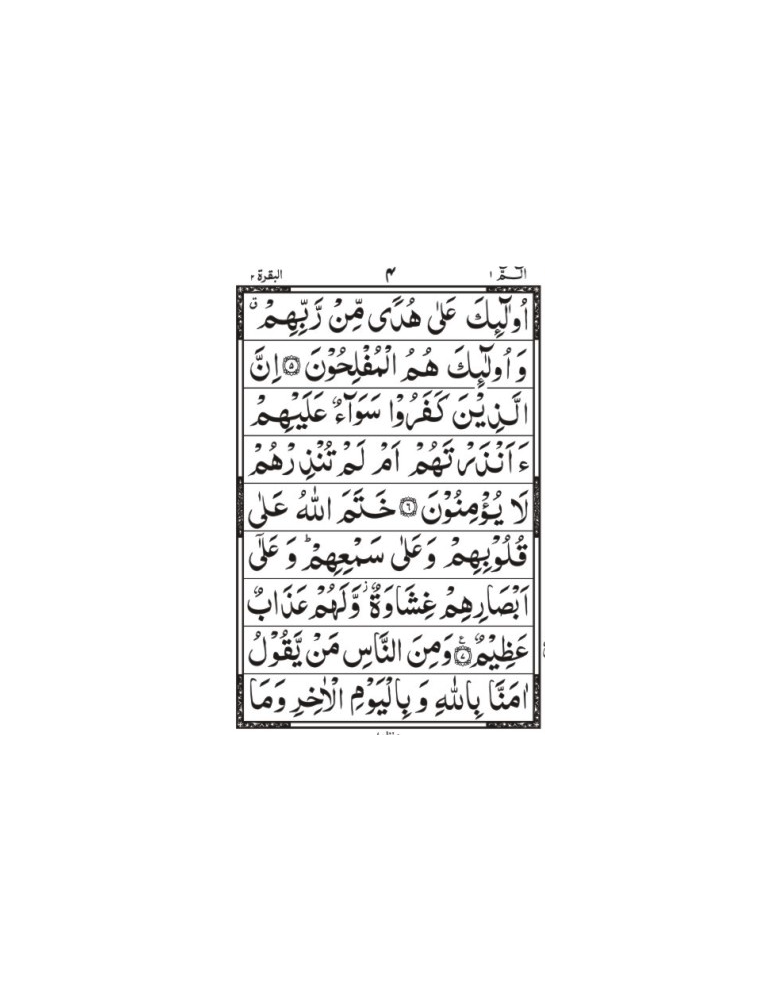 الٓـمّٓ ١ ٤ البقرة ٢
اُولٰٓئِكَ عَلٰى هُدًى مِّنْ رَّبِّهِمْ ۙ
وَ اُولٰٓئِكَ هُمُ الْمُفْلِحُوْنَ ۝٥ اِنَّ
الَّذِيْنَ كَفَرُوْا سَوَآءٌ عَلَيْهِمْ
ءَاَنْذَرْتَهُمْ اَمْ لَمْ تُنْذِرْهُمْ
لَا يُؤْمِنُوْنَ ۝٦ خَتَمَ اللّٰهُ عَلٰى
قُلُوْبِهِمْ وَعَلٰى سَمْعِهِمْ ؕ وَ عَلٰٓى
اَبْصَارِهِمْ غِشَاوَةٌ ز وَّلَهُمْ عَذَابٌ
عَظِيْمٌ ۝٧ ع وَمِنَ النَّاسِ مَنْ يَّقُوْلُ
اٰمَنَّا بِاللّٰهِ وَ بِالْيَوْمِ الْاٰخِرِ وَمَا